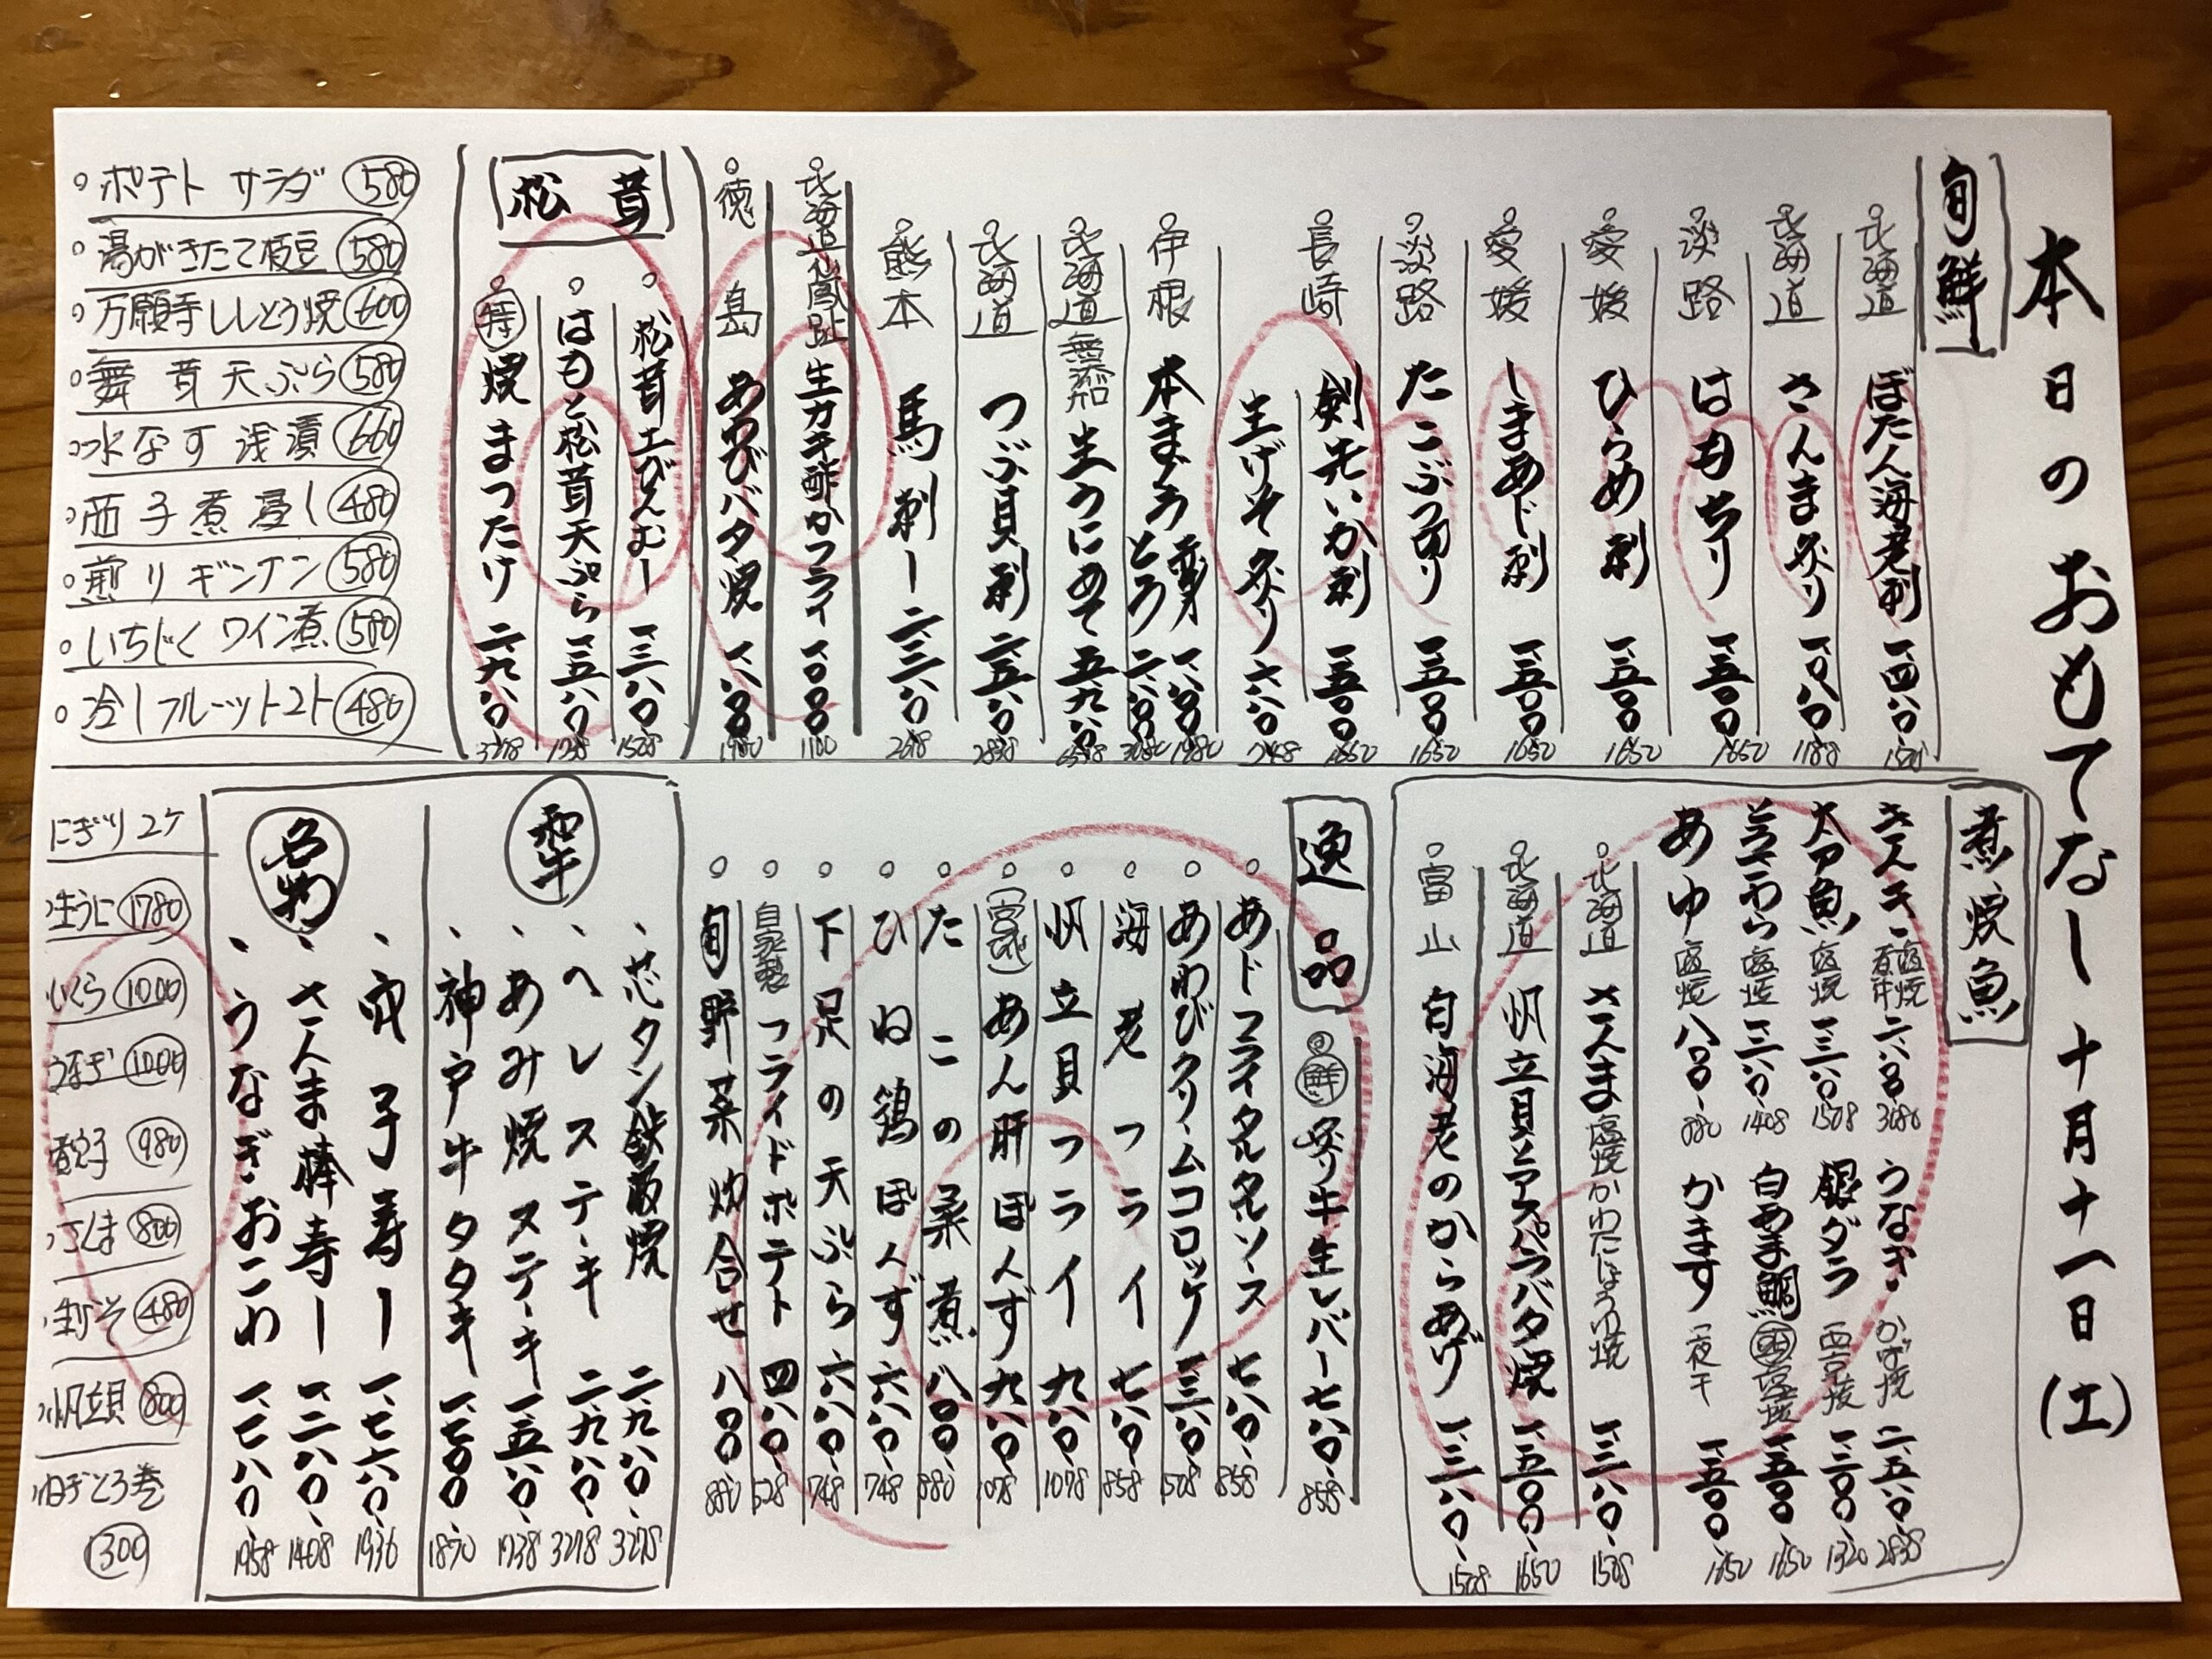 本日のおもてなし 十月十一日(土)
旬鮮
北海道 ぼたん海老刺 一、四八〇 
北海道 さんま炙り 一、〇八〇 1188
淡路 はもちり 一、五〇〇 1650
愛媛 ひらめ刺 一、五〇〇 1650
愛媛 しまあじ刺 一、五〇〇 1650
淡路 たこぶつ切り 一、五〇〇 1650
長崎 剣先いか刺 一、五〇〇 1650
生げそ炙り 六八〇 748
伊根 本まぐろ 赤身 一、八〇〇 1980
とろ 二、八〇〇 3080
北海道 無添加 生うにめて 五、九八〇 6578
北海道 つぶ貝刺 二、五八〇 2838
熊本 馬刺し 二、三八〇 2618
北海道仙鳳趾 生カキ酢かフライ 一、〇〇〇 1100
徳島 あわびバタ焼 一、八〇〇 1980
松茸
松茸土びんむし 一、三八〇 1508
はもと松茸天ぷら 一、五八〇 1738
特 焼まつたけ 二、九八〇 3278
ポテトサラダ 580
湯がきたて枝豆 580
万願寺ししとう焼 600
舞茸天ぷら 580
水なす浅漬 660
茄子煮浸し 480
煎りギンナン 580
いちじくワイン煮 580
冷しフルーツトマト 480
煮焼魚
きんき 塩焼 煮付 二、八〇〇 3080
大アマ魚 塩焼 一、三八〇 1508
とろさわら 塩焼 一、二八〇 1408
あゆ 塩焼 八〇〇 880
うなぎ かば焼 二、五八〇 2838
銀ダラ 西京焼 一、二〇〇 1320
白あま鯛 西京焼 一、五〇〇 1650
かます 一夜干 一、五〇〇 1650
北海道 さんま 塩焼かわたしょうゆ焼 一、三八〇 1508
北海道 帆立貝とアスパラバタ焼 一、五〇〇 1650
富山 白海老のからあげ 一、三八〇 1508
逸品
鮮 炙り牛生レバー 七八〇 858
あじフライタルタルソース 七八〇 858
あわびクリームコロッケ 一、三八〇 1508
海老フライ 七八〇 858
帆立貝フライ 九八〇 1078
あん肝ぽんず 九八〇 1078
たこの柔煮 八〇〇 880
ひね鶏ぽんず 六八〇 748
下足の天ぷら 六八〇 748
自家製 フライドポテト 四八〇 528
旬野菜炊合せ 八〇〇 880
和牛
芯タン鉄板焼 二、九八〇 3278
ヘレステーキ 二、九八〇 3278
あみ焼ステーキ 一、五八〇 1738
神戸牛タタキ 一、七〇〇 1870
名物
穴子寿し 一、七六〇 1936
さんま棒寿し 一、二八〇 1408
うなぎおこわ 一、七八〇 1958
にぎり2ケ
生うに 1780
いくら 1000
うなぎ 1000
煮穴子 980
さんま 800
生げそ 480
帆立貝 800
ねぎとろ巻
1300